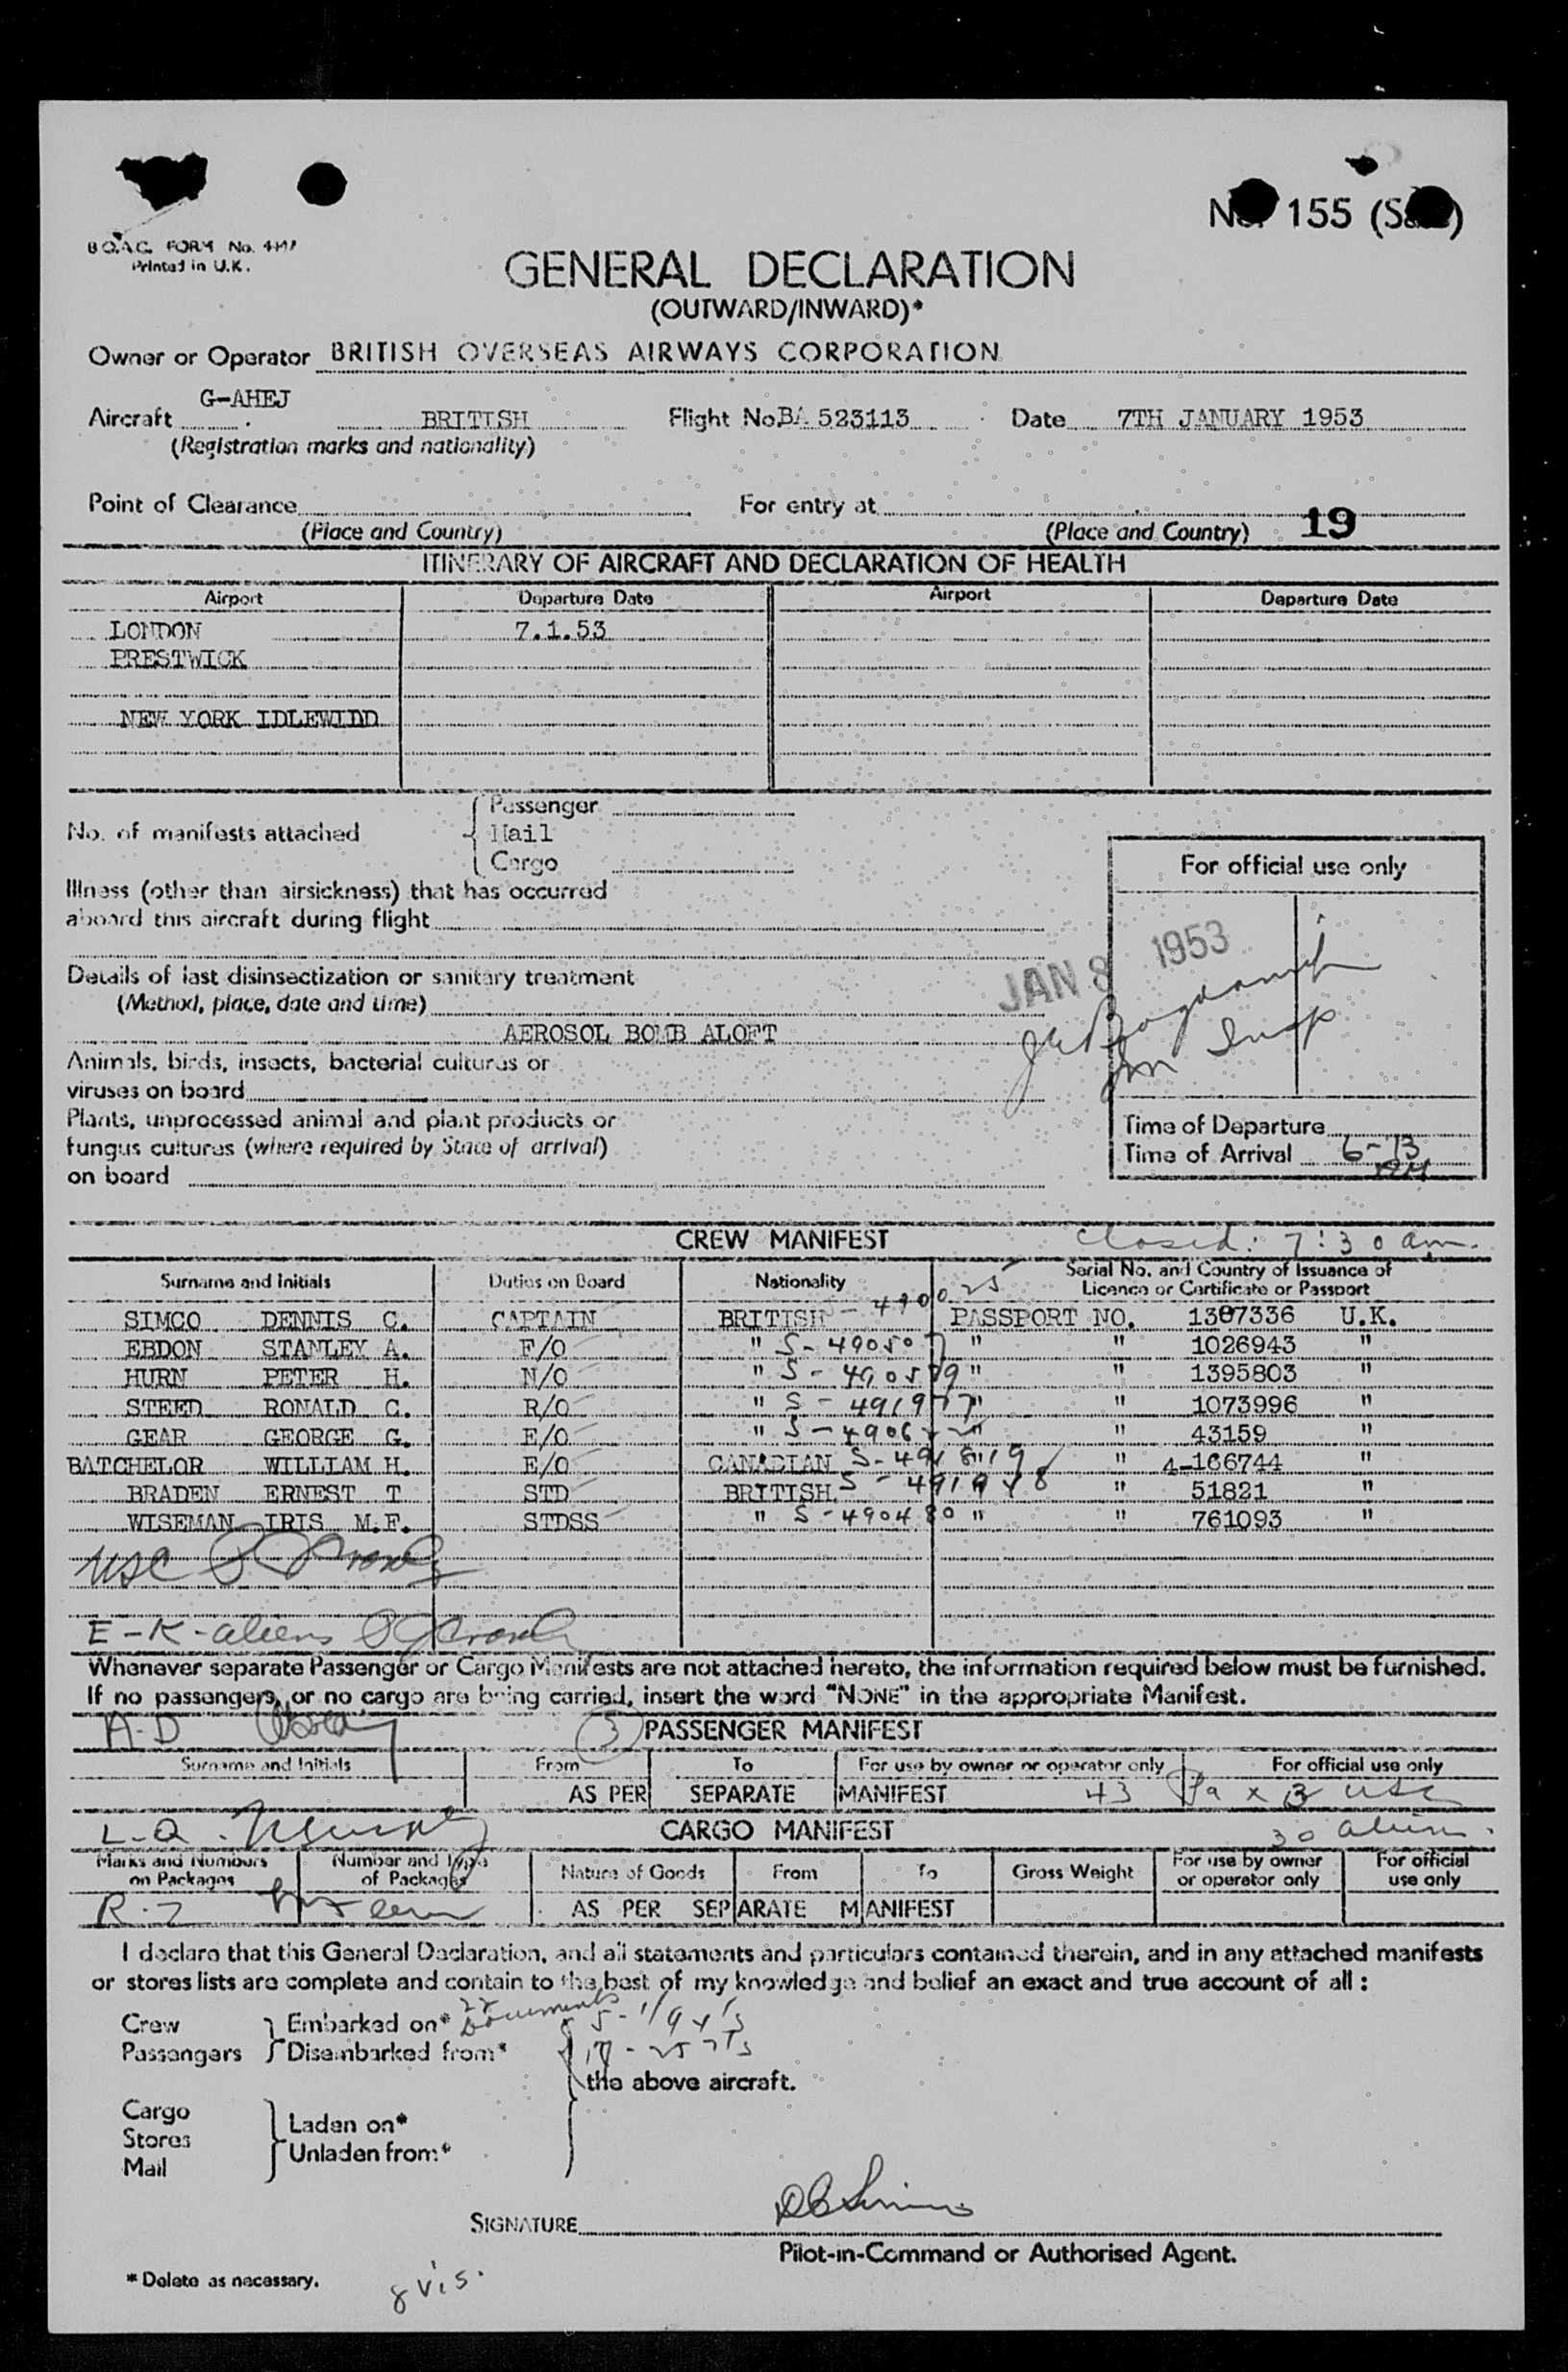 B.O.A.C. FORM No.
Printed in U.K.
155
GENERAL DECLARATION
(OUTWARD/INWARD)*
Owner or Operator BRITISH OVERSEAS AIRWAYS CORPORATION
G-AHEJ
Aircraft BRITISH Flight No. BA 523113 Date 7TH JANUARY 1953
(Registration marks and nationality)
Point of Clearance For entry at
(Place and Country) (Place and Country) 19
ITINERARY OF AIRCRAFT AND DECLARATION OF HEALTH
Airport Departure Date Airport Departure Date
LONDON 7.1.53
PRESTWICK
NEW YORK IDLEWIDD
Passenger
No. of manifests attached Mail
Cargo
For official use only
Illness (other than airsickness) that has occurred
aboard this aircraft during flight
JAN 8 1953
Details of last disinsectization or sanitary treatment
(Method, place, date and time)
AEROSOL BOMB ALOFT
Imm Insp
Animals, birds, insects, bacterial cultures or
viruses on board
Plants, unprocessed animal and plant products or
fungus cultures (where required by State of arrival)
on board
Time of Departure
Time of Arrival 6-13
CREW MANIFEST closed: 7:30 am.
Surname and Initials Duties on Board Nationality Serial No. and Country of Issuance of
Licence or Certificate or Passport
SIMCO DENNIS C. CAPTAIN BRITISH S-490025 PASSPORT NO. 1387336 U.K.
EBDON STANLEY A. F/O " S-490507 " " 1026943 "
HURN PETER H. N/O " S-490579 " " 1395803 "
STEED RONALD C. R/O " S-491977 " " 1073996 "
GEAR GEORGE G. E/O " " " 43159 "
BATCHELOR WILLIAM H. E/O CANADIAN S-491819 " " 4-166744 "
BRADEN ERNEST T STD BRITISH " 51821 "
WISEMAN IRIS M.F. STDSS " S-490480 " " 761093 "
USC
E-K-aliens
Whenever separate Passenger or Cargo Manifests are not attached hereto, the information required below must be furnished.
If no passengers, or no cargo are being carried, insert the word "NONE" in the appropriate Manifest.
A-D 3 PASSENGER MANIFEST
Surname and Initials From To For use by owner or operator only For official use only
AS PER SEPARATE MANIFEST 43
L-Q CARGO MANIFEST 30 aliens
Marks and Numbers on Packages Number and Type of Packages Nature of Goods From To Gross Weight For use by owner or operator only For official use only
R-Z AS PER SEPARATE MANIFEST
I declare that this General Declaration, and all statements and particulars contained therein, and in any attached manifests
or stores lists are complete and contain to the best of my knowledge and belief an exact and true account of all :
Crew Embarked on* Documents
Passengers Disembarked from*
the above aircraft.
Cargo Laden on*
Stores Unladen from*
Mail
SIGNATURE
Pilot-in-Command or Authorised Agent.
* Delete as necessary. 8 vis.